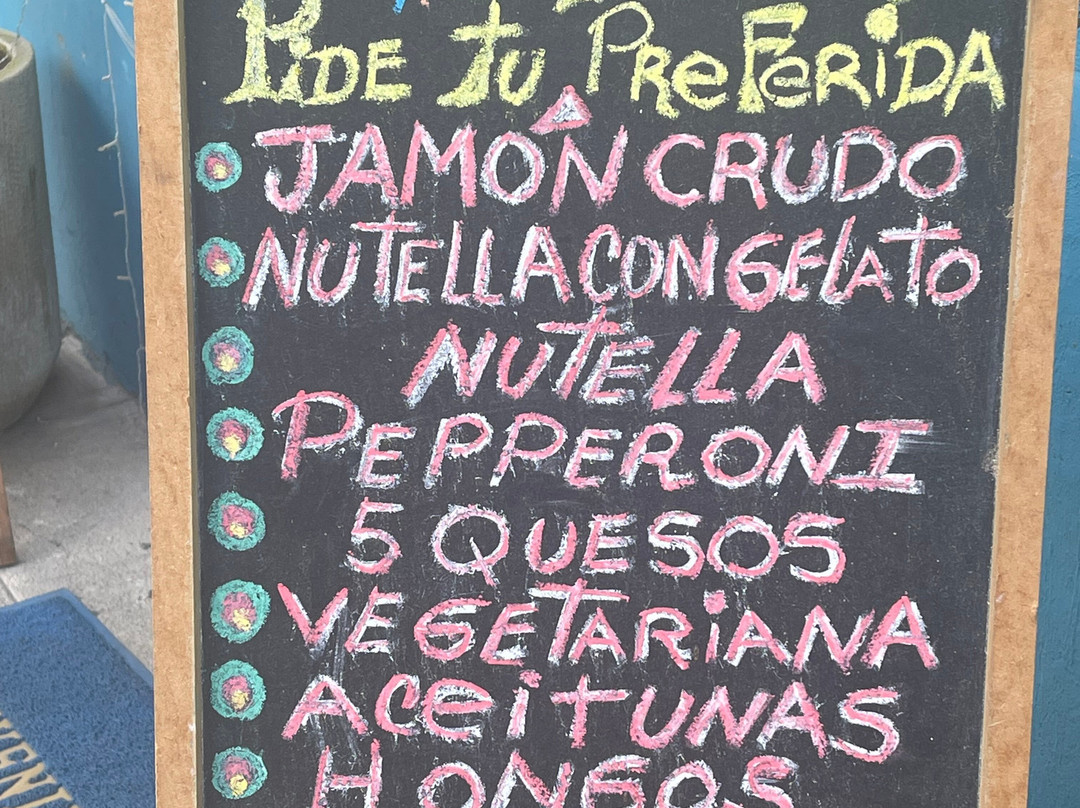 Pide tu PreFeRiDA
JAMÓN CRUDO
NUTELLA CON GELATO
NUTELLA
PEPPERONI
5 QUESOS
VEGETARiANA
ACeiTUNAS
HONGOS